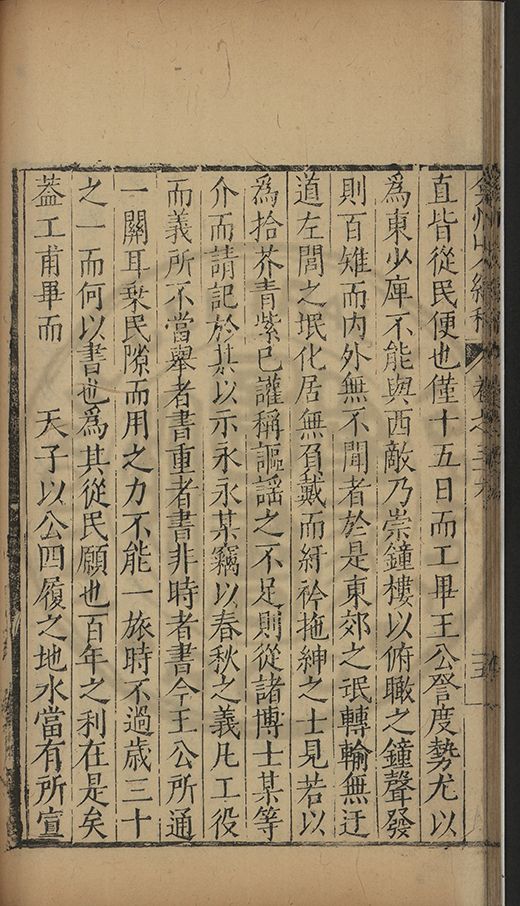 弇州山人續稿 卷之
直皆從民便也僅十五日而工畢王公詧度勢尤以
為東少庳不能與西敵乃崇鐘樓以俯瞰之鐘聲發
則百雉而內外無不聞者於是東郊之氓轉輸無迂
道左閭之氓化居無負戴而紆衿拖紳之士見若以
為拾芥青紫已讙稱謳謠之不足則從諸博士某等
介而請記於某以示永永某竊以春秋之義凡工役
而義所不當舉者書重者書非時者書今王公所通
一關耳乗民隙而用之力不能一旅時不過歳三十
之一而何以書也為其從民願也百年之利在是矣
葢工甫畢而　天子以公四履之地水當有所宣